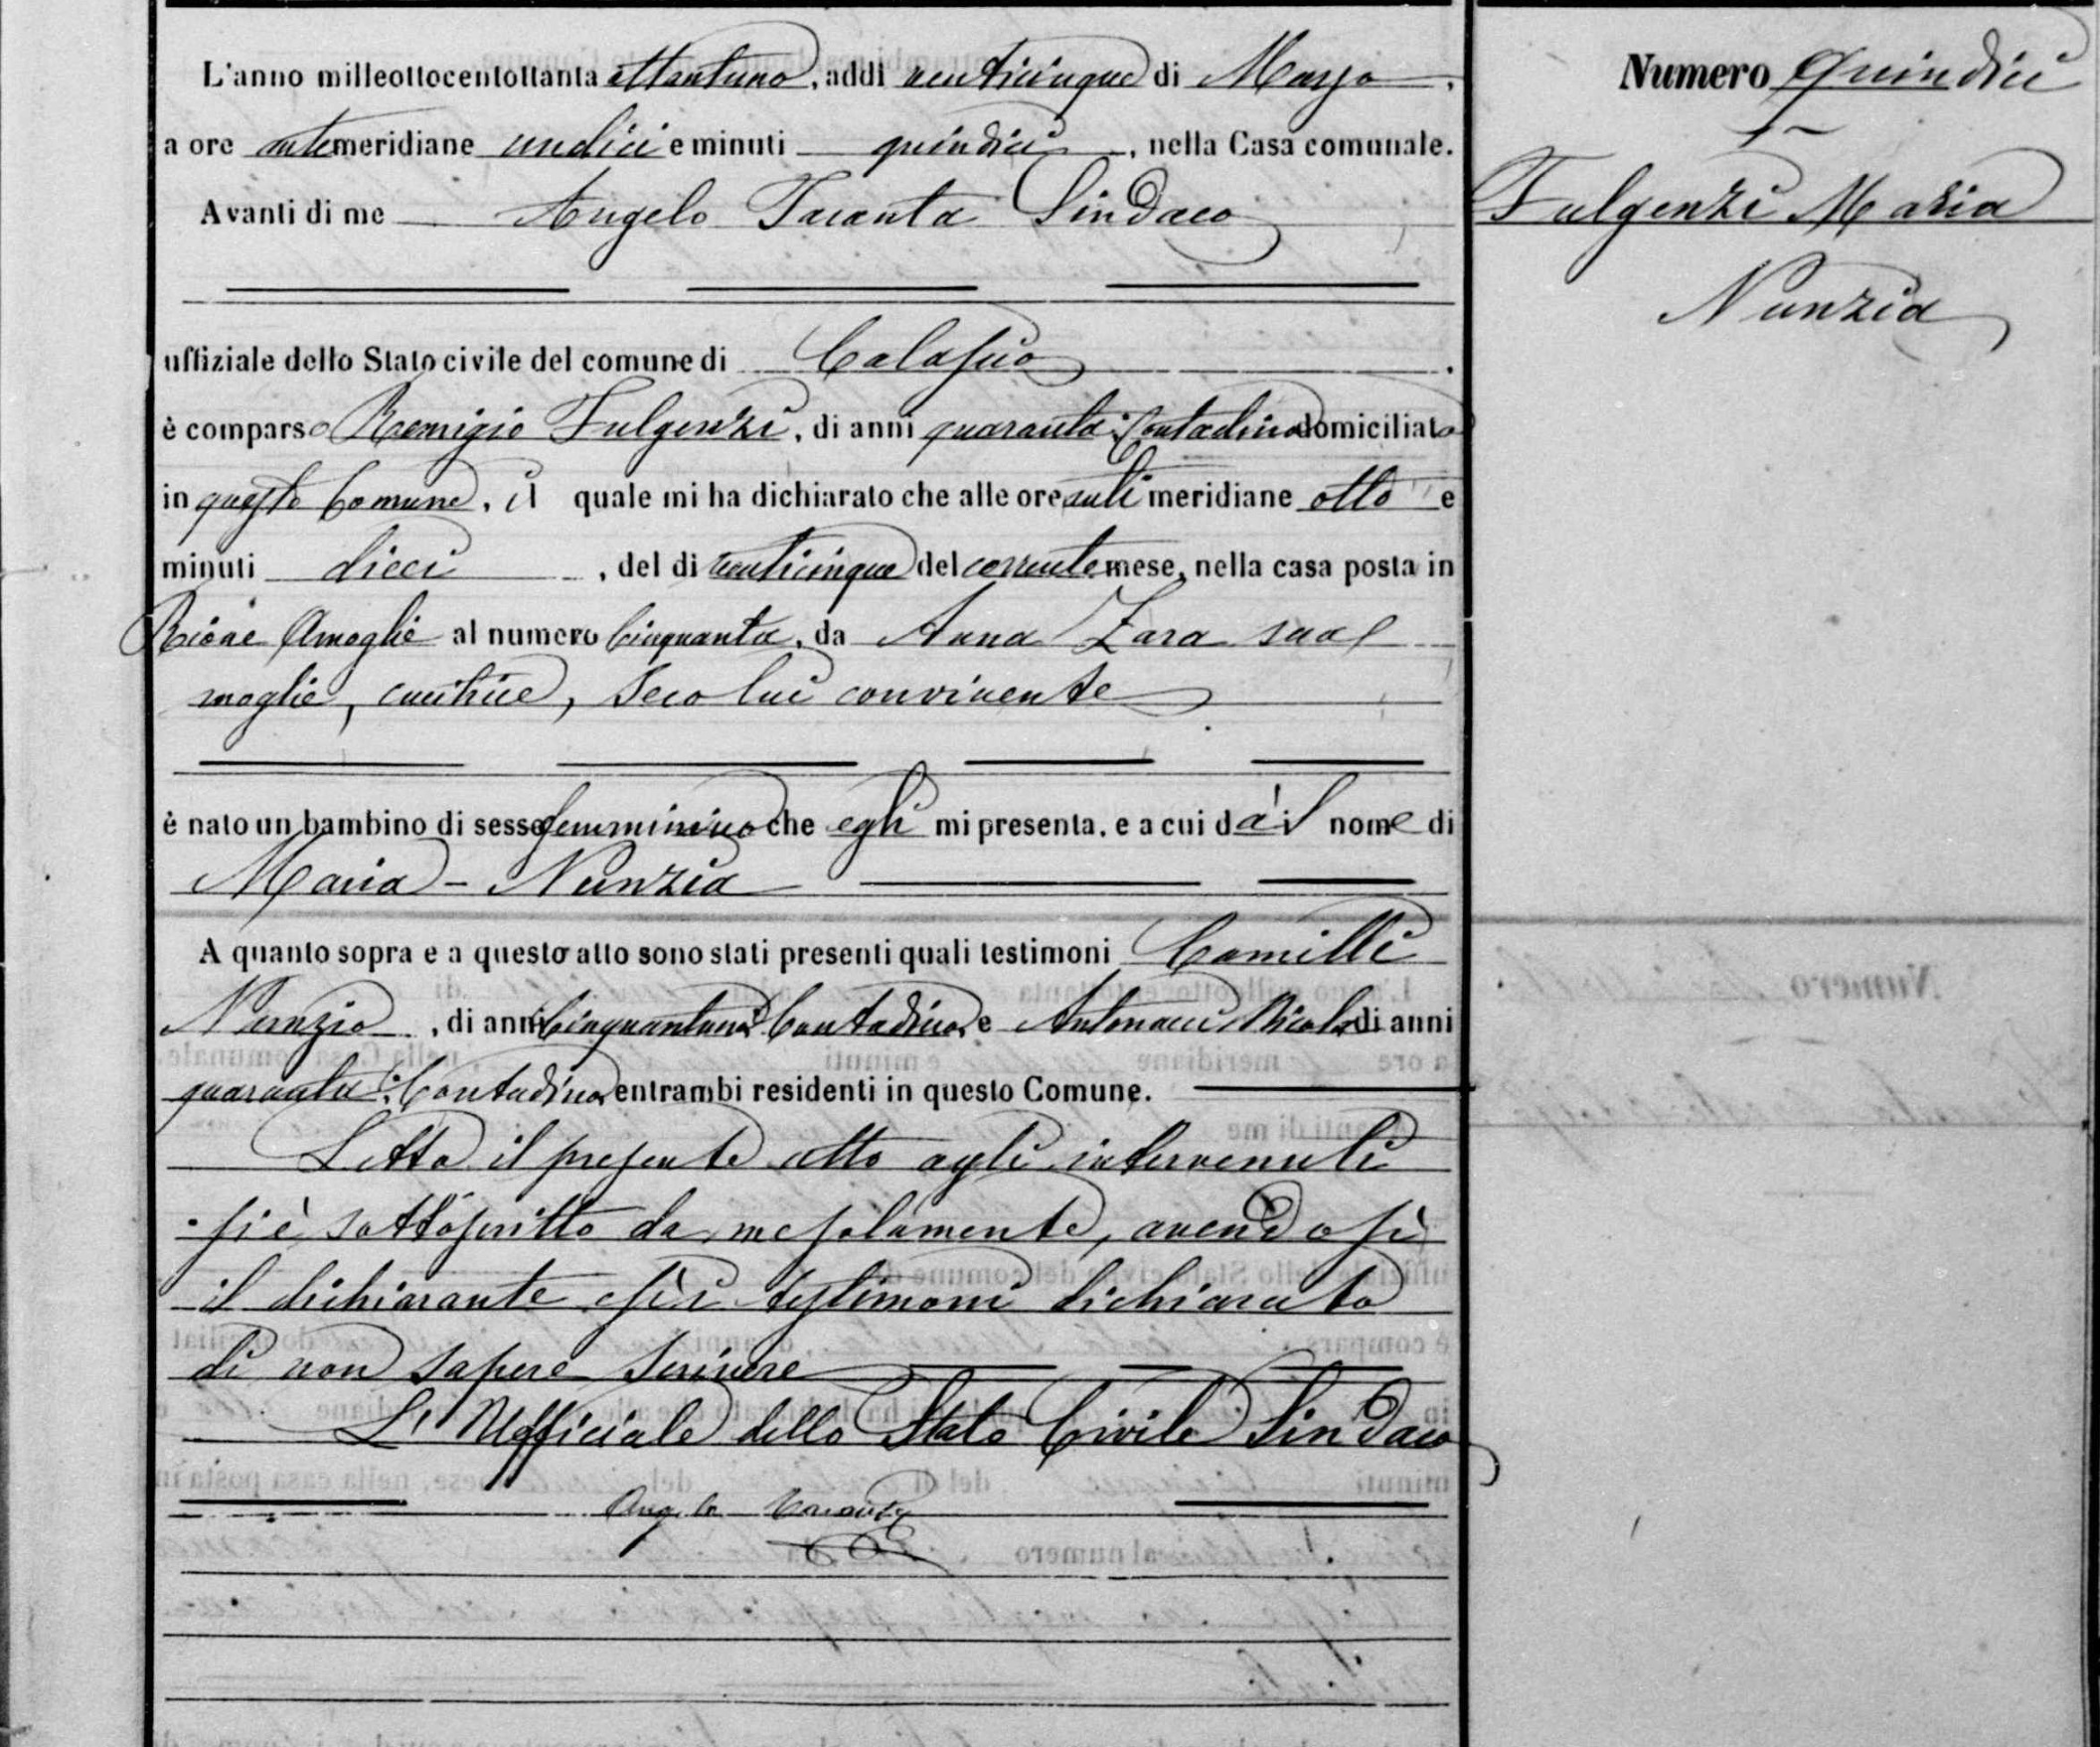 Numero Quindici
Fulgenzi Maria
Nunzia
L'anno milleottocentottanta ottantuno, addì venticinque di Marzo,
a ore antemeridiane undici e minuti quindici, nella Casa comunale.
Avanti di me Angelo Taranta Sindaco
uffiziale dello Stato civile del comune di Calascio.
è comparso Remigio Fulgenzi, di anni quaranta: Contadino domiciliato
in questo Comune, il quale mi ha dichiarato che alle ore anti meridiane otto e
minuti dieci, del dì venticinque del corrente mese, nella casa posta in
Rione al numero Cinquanta, da Anna Zara sua
moglie, cucitrice, seco lui convivente
è nato un bambino di sesso femminino che egli mi presenta, e a cui dà il nome di
Maria - Nunzia
A quanto sopra e a questo atto sono stati presenti quali testimoni Camilli
Nunzio, di anni Cinquantuno: Contadino, e Antonacci Nicola di anni
quaranta: Contadino, entrambi residenti in questo Comune.
Letto il presente atto agli intervenuti
si è sottoscritto da me solamente, avendo sì
il dichiarante che i testimoni dichiarato
di non sapere scrivere
L'Ufficiale dello Stato Civile Sindaco
Angelo Taranta